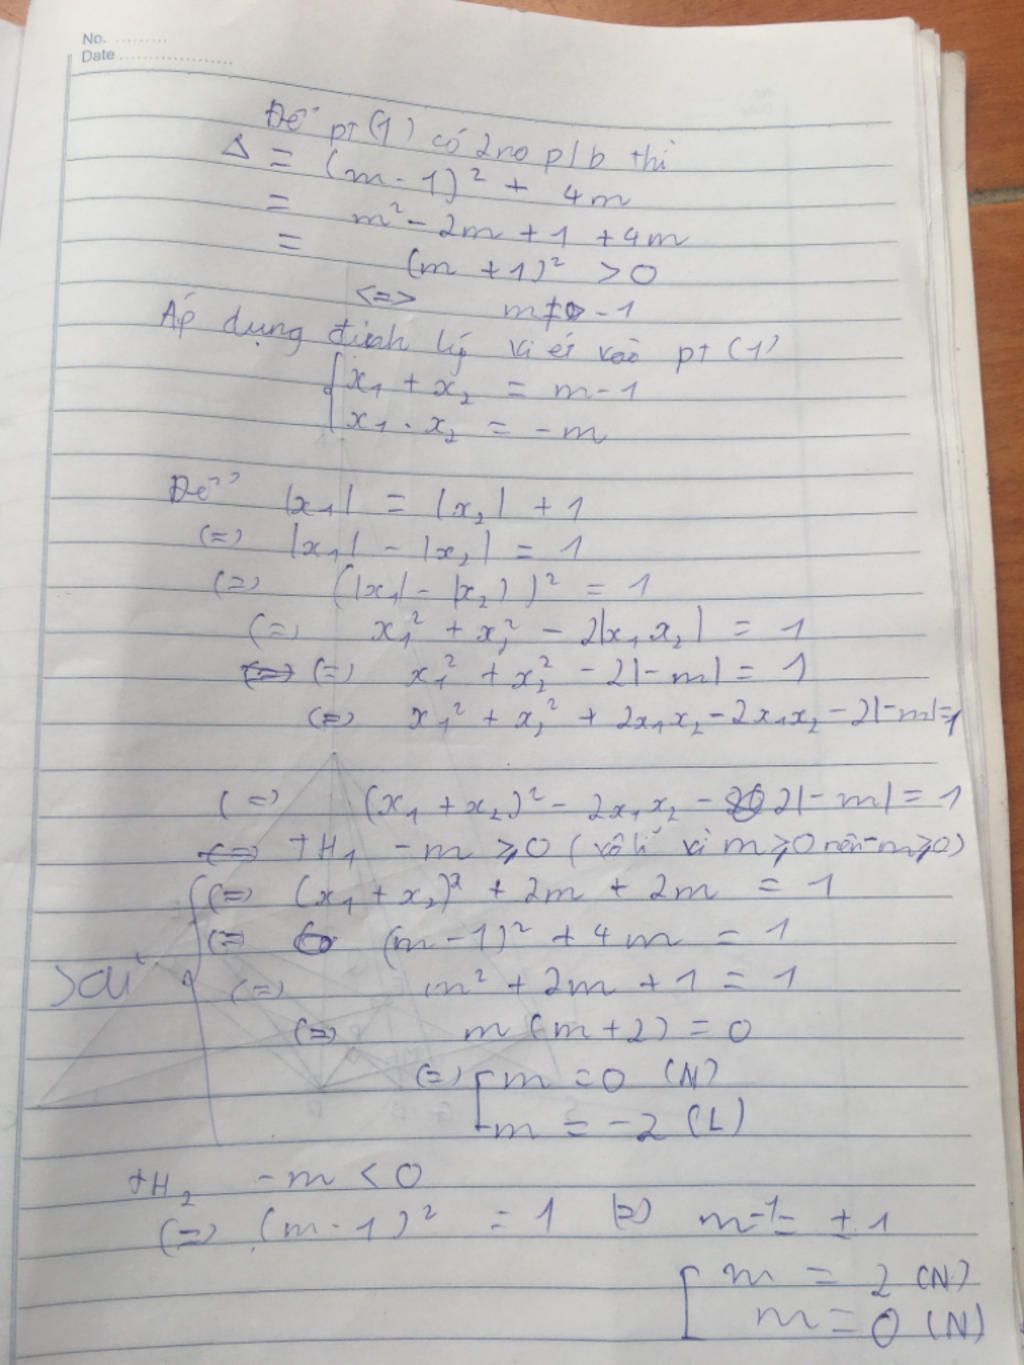 No. .........
Date .....................
Để pt (1) có 2 no p/b thì
Δ = (m - 1)² + 4m
= m² - 2m + 1 + 4m
= (m + 1)² > 0
<=> m ≠ - 1
Áp dụng định lý vi ét vào pt (1)
{ x₁ + x₂ = m - 1
x₁ . x₂ = - m
Để |x₁| = |x₂| + 1
(=) |x₁| - |x₂| = 1
(=) (|x₁| - |x₂|)² = 1
(=) x₁² + x₂² - 2|x₁x₂| = 1
(=) x₁² + x₂² - 2|-m| = 1
(=) x₁² + x₂² + 2x₁x₂ - 2x₁x₂ - 2|-m| = 1
(=) (x₁ + x₂)² - 2x₁x₂ - 2|-m| = 1
+H₁ -m ⩾ 0 (vô lí vì m ⩾ 0 nên -m ⩾ 0)
(=) (x₁ + x₂)² + 2m + 2m = 1
(=) (m - 1)² + 4m = 1
Sai (=) m² + 2m + 1 = 1
(=) m (m + 2) = 0
(=) [ m = 0 (N)
m = -2 (L)
+H₂ -m < 0
(=) (m - 1)² = 1 (=) m - 1 = ± 1
[ m = 2 (N)
m = 0 (N)